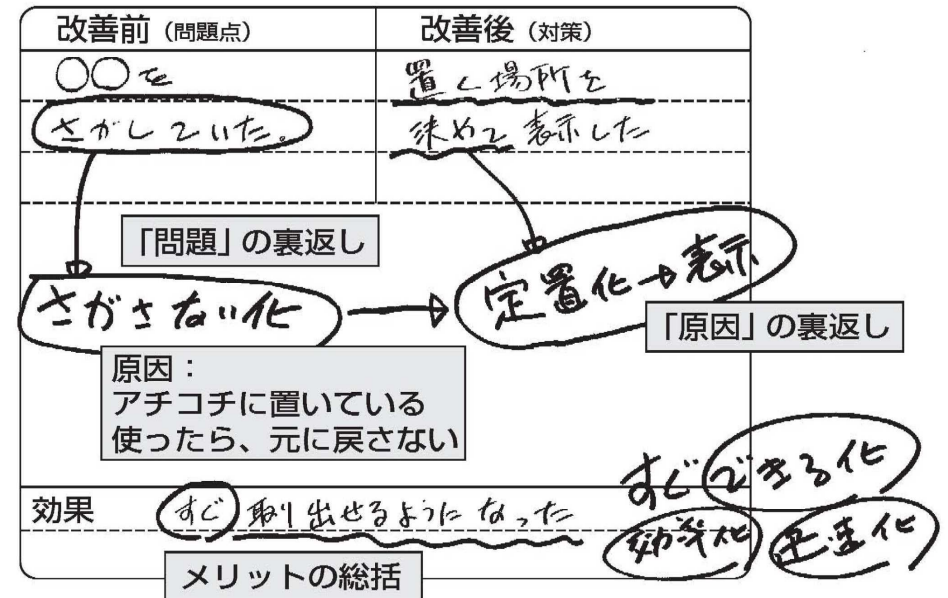 改善前（問題点）
改善後（対策）
○○を
さがしていた。
置く場所を
決めて表示した
「問題」の裏返し
さがさない化
定置化→表示
「原因」の裏返し
原因：
アチコチに置いている
使ったら、元に戻さない
すぐできる化
効果
すぐ取り出せるようになった
効率化
迅速化
メリットの総括